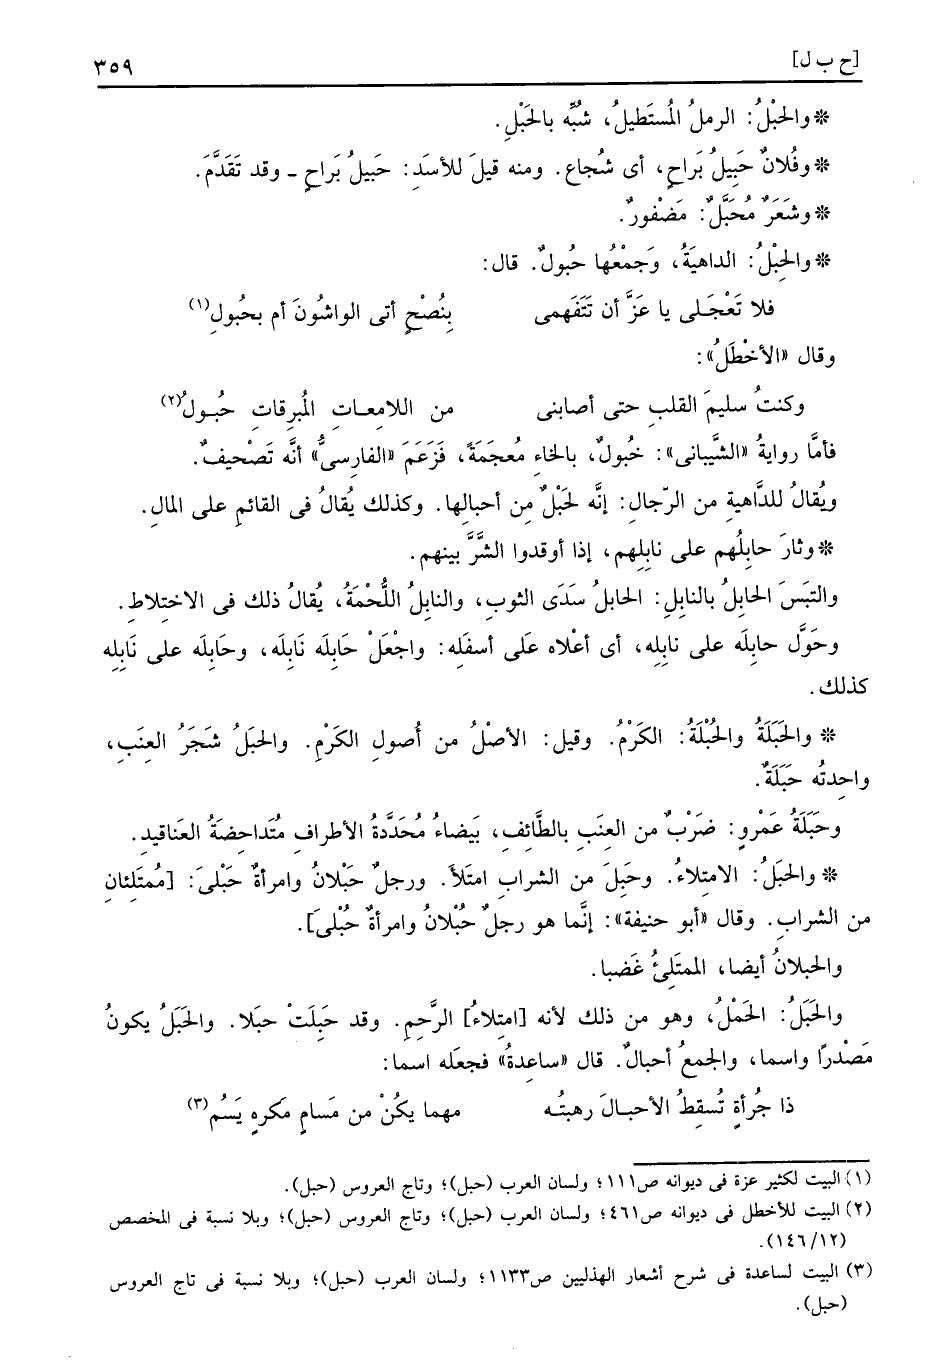 [ح ب ل] ٣٥٩
* والحَبْلُ: الرملُ المُستَطيلُ، شُبِّه بالحَبْلِ.
* وفُلانٌ حَبِيلُ بَراحٍ، أى شُجاع. ومنه قيلَ للأسَدِ: حَبيلُ بَراحٍ ـ وقد تَقَدَّمَ.
* وشَعَرٌ مُحَبَّلٌ: مَضْفورٌ.
* والحِبْلُ: الداهيَةُ، وَجمْعُها حُبولٌ. قال:
فلا تَعْجَـلى يا عَزَّ أن تَتَفَهمى بِنُصْحٍ أتى الواشُونَ أم بحُبولِ(١)
وقال «الأخْطَلُ»:
وكنتُ سليمَ القلبِ حتى أصابنى من اللامعـاتِ المُبرقاتِ حُبـولُ(٢)
فأمَّا روايةُ «الشَّيبانى»: خُبولٌ، بالخاءِ مُعجَمَةً، فَزَعَمَ «الفارسىُّ» أنَّه تَصْحيفٌ.
ويُقالُ للدَّاهيةِ من الرِّجال: إنَّه لحَبْلٌ مِن أحبالِها. وكذلك يُقالُ فى القائمِ على المالِ.
* وثارَ حابِلُهم على نابِلِهم، إذا أوقدوا الشَّرَّ بينهم.
والتبَسَ الحابِلُ بالنابِلِ: الحابلُ سَدَى الثوبِ، والنابِلُ اللُّحْمَةُ، يُقالُ ذلك فى الاختِلاطِ.
وحَوَّل حابلَه على نابِلِه، أى أعْلاه عَلى أسفَلِه: واجْعَلْ حَابِلَه نَابِلَه، وحَابِلَه على نَابِلِه
كذلك.
* والحَبَلَةُ والحُبْلَةُ: الكَرْمُ. وقيل: الأصْلُ من أُصولِ الكَرْمِ. والحَبَلُ شَجَرُ العِنَبِ،
واحِدتُه حَبَلَةٌ.
وحَبَلَةُ عَمْروٍ: ضَرْبٌ من العِنَبِ بالطَّائفِ، بَيضاءُ مُحَدَّدةُ الأطرافِ مُتَداحِضَةُ العَناقيدِ.
* والحَبَلُ: الامتِلاءُ. وحَبِلَ من الشرابِ امتَلأَ. ورجلٌ حَبْلانُ وامرأةٌ حَبْلىَ: [مُمتَلِئانِ
من الشرابِ. وقال «أبو حنيفة»: إنَّما هو رجلٌ حُبْلانُ وامرأةٌ حُبْلىَ].
والحبلانُ أيضا، الممتَلِئُ غَضبا.
والحَبَلُ: الحَمْلُ، وهو من ذلك لأنه [امتِلاءُ] الرَّحِمِ. وقد حَبِلَتْ حبَلا. والحَبَلُ يكونُ
مَصْدراً واسما، والجمعُ أحبالٌ. قال «ساعِدةُ» فجعَله اسما:
ذا جُرأةٍ تُسقِطُ الأحبـالَ رهبتُـه مهما يكُنْ من مَسامٍ مَكرهٍ يَسُم(٣)
(١) البيت لكثير عزة فى ديوانه ص١١١؛ ولسان العرب (حبل)؛ وتاج العروس (حبل).
(٢) البيت للأخطل فى ديوانه ص٤٦١؛ ولسان العرب (حبل)؛ وتاج العروس (حبل)؛ وبلا نسبة فى المخصص
(١٤٦/١٢).
(٣) البيت لساعدة فى شرح أشعار الهذليين ص١١٣٣؛ ولسان العرب (حبل)؛ وبلا نسبة فى تاج العروس
(حبل).